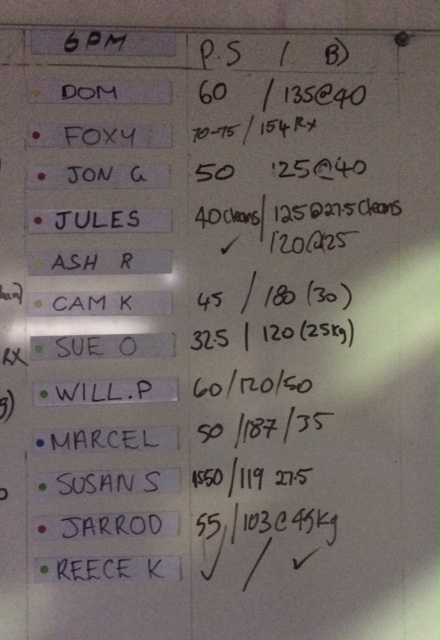 6PM P.S / B)
DOM 60 / 135@40
FOXY 70-75 / 154 Rx
JON G 50 125@40
JULES 40 Cleans / 125@27.5 Cleans
ASH R ✓ 120@25
CAM K 45 / 180 (30)
RX SUE O 32.5 | 120 (25kg)
WILL.P 60/120/50
MARCEL 50 /187 / 35
SUSAN S /119 27.5
JARROD 55 / 103@45kg
REECE K ✓ / ✓